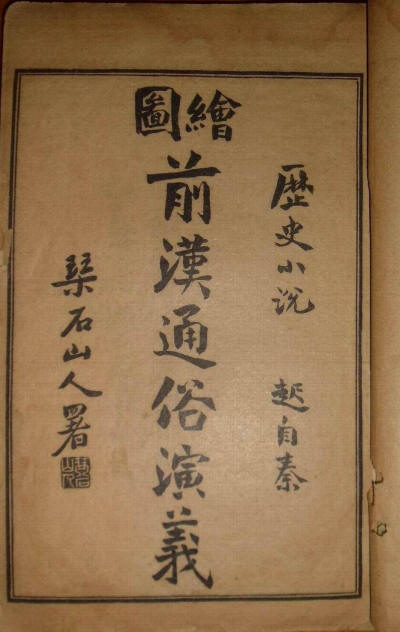 歷史小说 起自秦
繪圖
前漢通俗演義
琹石山人署